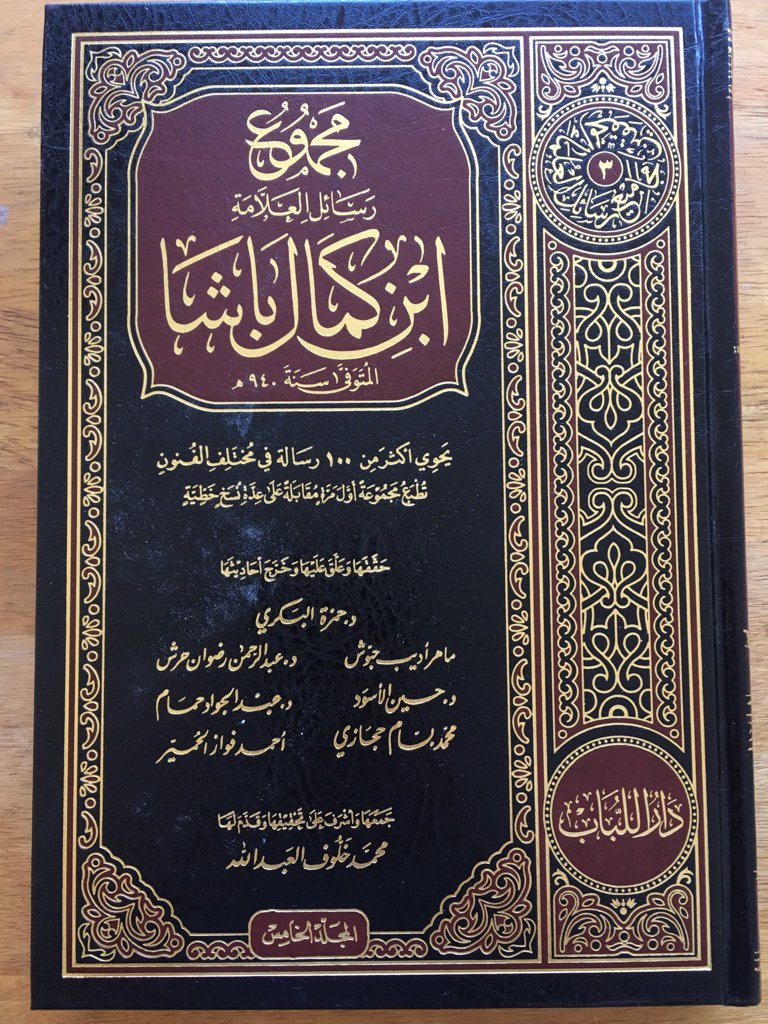 مَجْمُوعُ
رَسَائِلِ العَلَّامَةِ
ابْنِ كَمَال بَاشَا
المُتَوَفَّى سَنَةَ ٩٤٠ هـ
يَحوي أكثَر مِن ١٠٠ رسَالة في مُختَلِفِ الفُنونِ
تُطْبَعُ مَجْمُوعَةً أوّلَ مَرّةٍ مُقَابَلَةً عَلى عِدَّةِ نُسَخٍ خَطّيَّةٍ
حَقَّقَهَا وَعَلَّقَ عَلَيْهَا وَخَرَّجَ أَحَادِيثَهَا
د. حمزة البكري
ماهر أديب حبّوش
د. عبد الرحمن رضوان حرش
د. حسين الأسود
د. عبد الجواد حمام
محمّد بسام حجازي
أحمد فواز الحُميّر
جَمَعَهَا وَأشرَفَ عَلىٰ تَحْقِيقِهَا وَقَدَّمَ لَهَا
محمّد خلّوف العَبدالله
المُجَلّدُ الخَامِسُ
٣
دَارُ اللُّبَاب